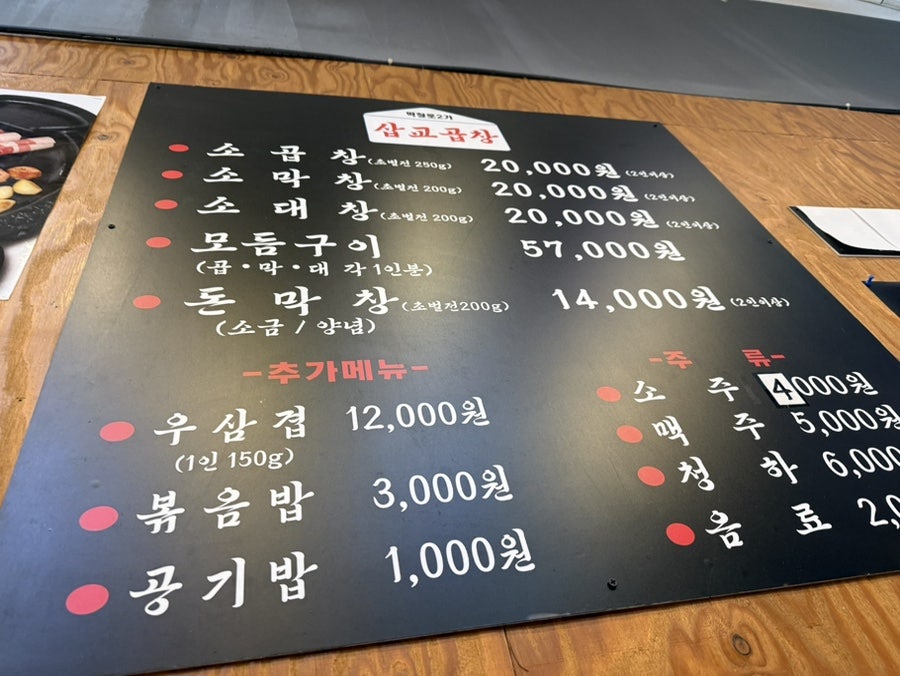 삼교곱창
소곱창(초벌전 250g) 20,000원 (2인이상)
소막창(초벌전 200g) 20,000원 (2인이상)
소대창(초벌전 200g) 20,000원 (2인이상)
모듬구이 57,000원
(곱·막·대 각 1인분)
돈막창(초벌전200g) 14,000원 (2인이상)
(소금 / 양념)
-추가메뉴-
우삼겹 12,000원
(1인 150g)
볶음밥 3,000원
공기밥 1,000원
-주류-
소주 4000원
맥주 5,000원
청하 6,000
음료 2,0